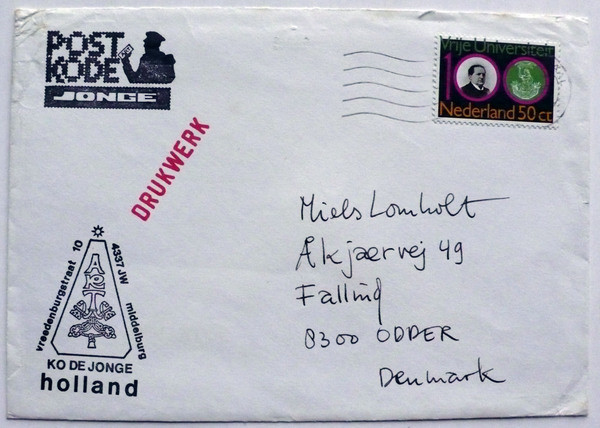 POST
KODE
JONGE
Vrije Universiteit
100
Nederland 50 ct
DRUKWERK
Niels Lomholt
Åkjærvej 49
Falling
8300 ODDER
Denmark
vreedenburgstraat 10
4337 JW middelburg
ART
KO DE JONGE
holland